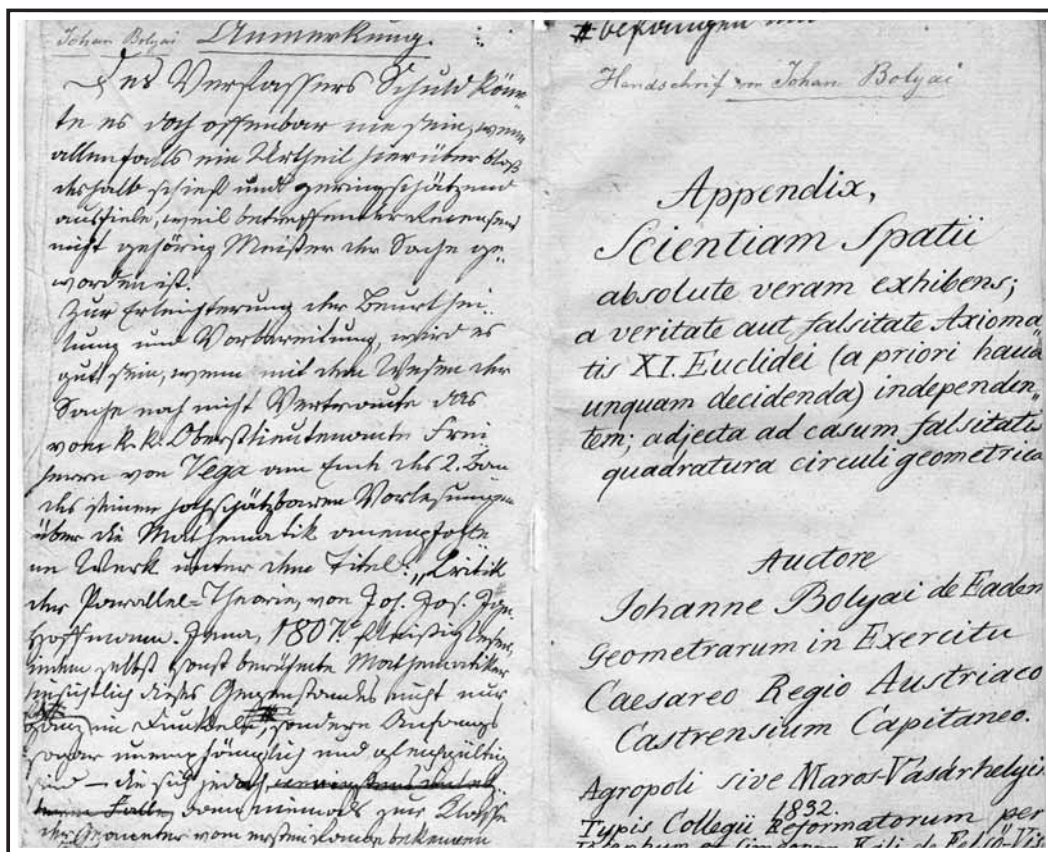 Johan Bolyai Anmerkung.
Des Verfassers Schuld könn-
te es doch offenbar nie sein, wenn
allenfalls ein Urtheil hierüber bloß
deshalb schief und geringschätzend
ausfiele, weil betreffender Recensent
nicht gehörig Meister der Sache ge-
worden ist.
Zur Erleichterung der Beurthei-
lung und Vorbereitung, wird es
gut sein, wenn mit dem Wesen der
Sache noch nicht Vertraute das
vom k. k. Oberstlieutenante Frei-
herrn von Vega am Ende des 2. Ban
des seiner hochschätzbaren Vorlesungen
über die Mathematik anempfohle
ne Werk unter dem Titel: „Kritik
der Parallel-Theorie, von Joh. Jos. Ign.
Hoffmann. Jena, 1807." fleißig lesen,
indem selbst sonst berühmte Mathematiker
hinsichtlich dieses Gegenstandes nicht nur
ganz im Dunkel, sondern Anfangs
sogar unempfänglich und gleichgültig
sind – die sich jedoch
dann niemals zur Klasse
der Geometer vom ersten Range bekennen
Handschrif von Johan Bolyai
Appendix,
Scientiam Spatii
absolute veram exhibens;
a veritate aut falsitate Axioma„
tis XI. Euclidei (a priori haud
unquam decidenda) independen„
tem; adjecta ad casum falsitatis
quadratura circuli geometrica
Auctore
Johanne Bolyai de Eadem
Geometrarum in Exercitu
Caesareo Regio Austriaco
Castrensium Capitaneo.
Agropoli sive Maros-Vásárhelyii
1832.
Typis Collegii Reformatorum per